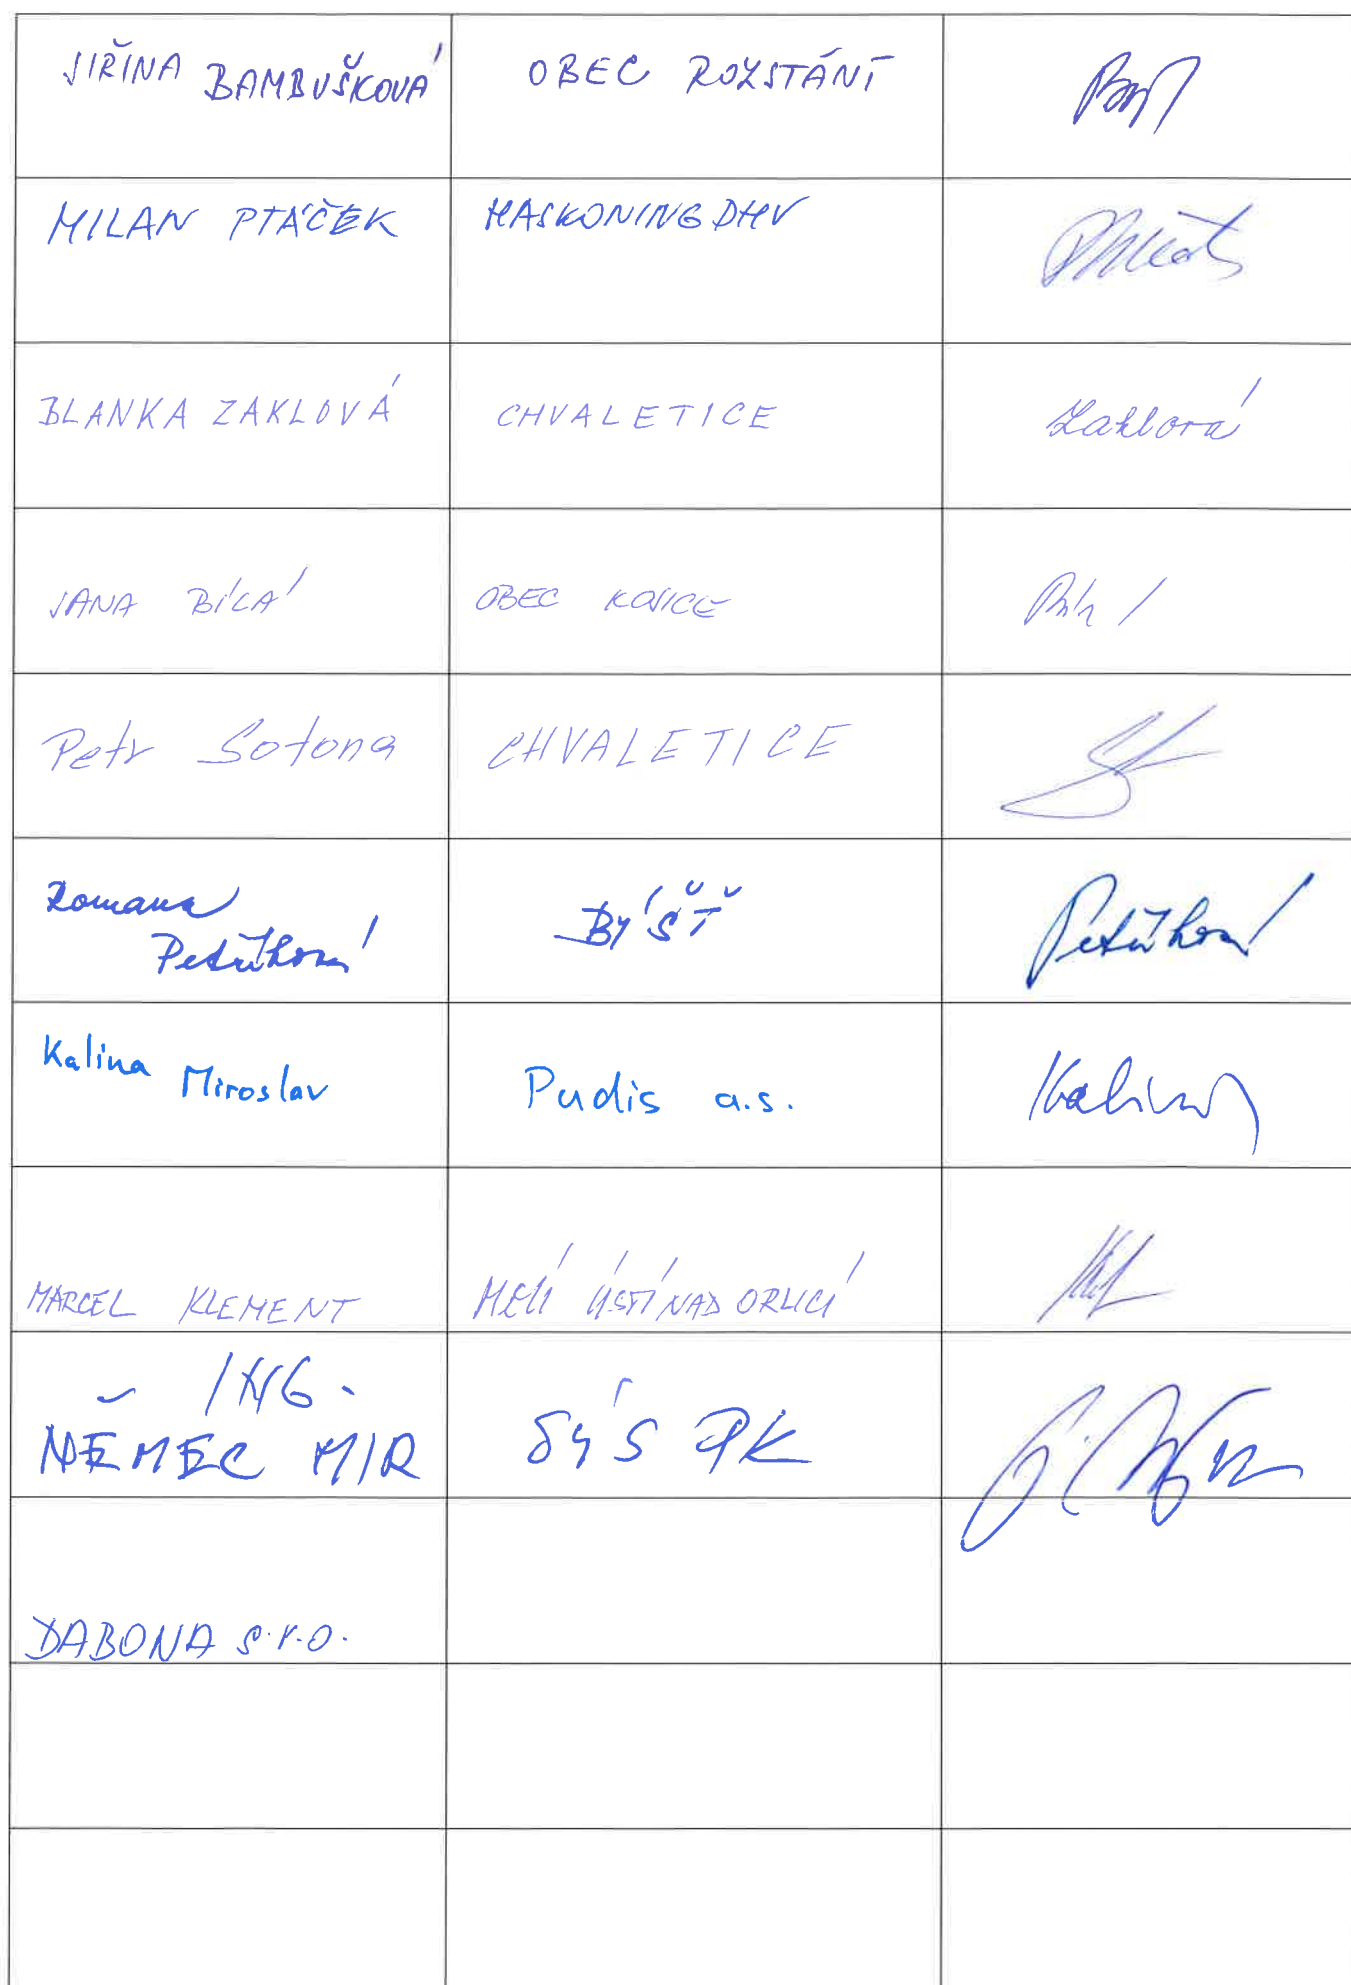 JIŘINA BAMBUŠKOVÁ OBEC ROZSTÁNÍ
MILAN PTÁČEK HASKONINGDHV
BLANKA ZAKLOVÁ CHVALETICE Zaklová
JANA BÍLÁ OBEC KOJICE
Petr Sotona CHVALETICE
Romana BÝŠŤ Petrůhová
Petrůhová
Kalina Miroslav Pudis a.s. Kalina
MARCEL KLEMENT ÚSTÍ NAD ORLICÍ
ING.
NĚMEC MIR SÚS PK
DABONA s.r.o.